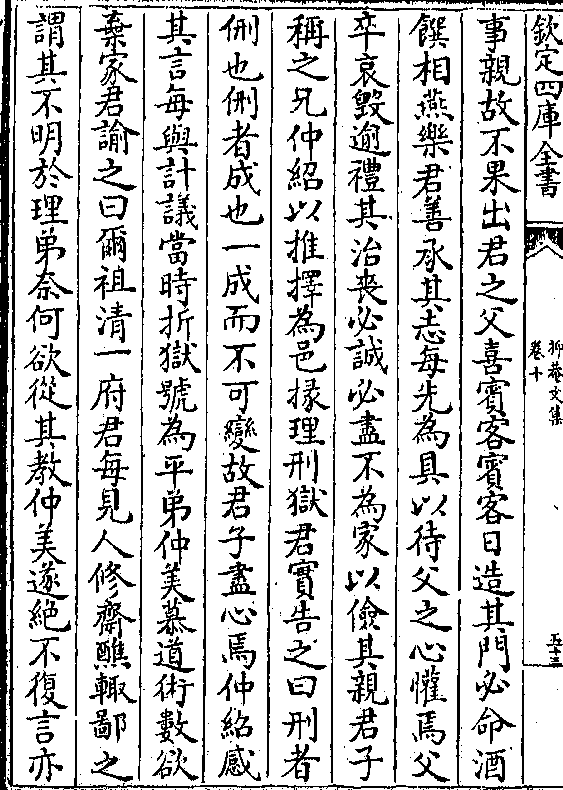 欽定四庫全書
抑菴文集
卷十
五十三
事親故不果出君之父喜賓客賓客日造其門必命酒
饌相燕樂君善承其志每先為具以待父之心懽焉父
卒哀毀逾禮其治喪必誠必盡不為家以儉其親君子
稱之兄仲紹以推擇為邑掾理刑獄君實告之曰刑者
侀也侀者成也一成而不可變故君子盡心焉仲紹感
其言每與計議當時折獄號為平弟仲美慕道術數欲
棄家君諭之曰爾祖清一府君每見人修齋醮輙鄙之
謂其不明於理弟奈何欲從其教仲美遂絶不復言亦